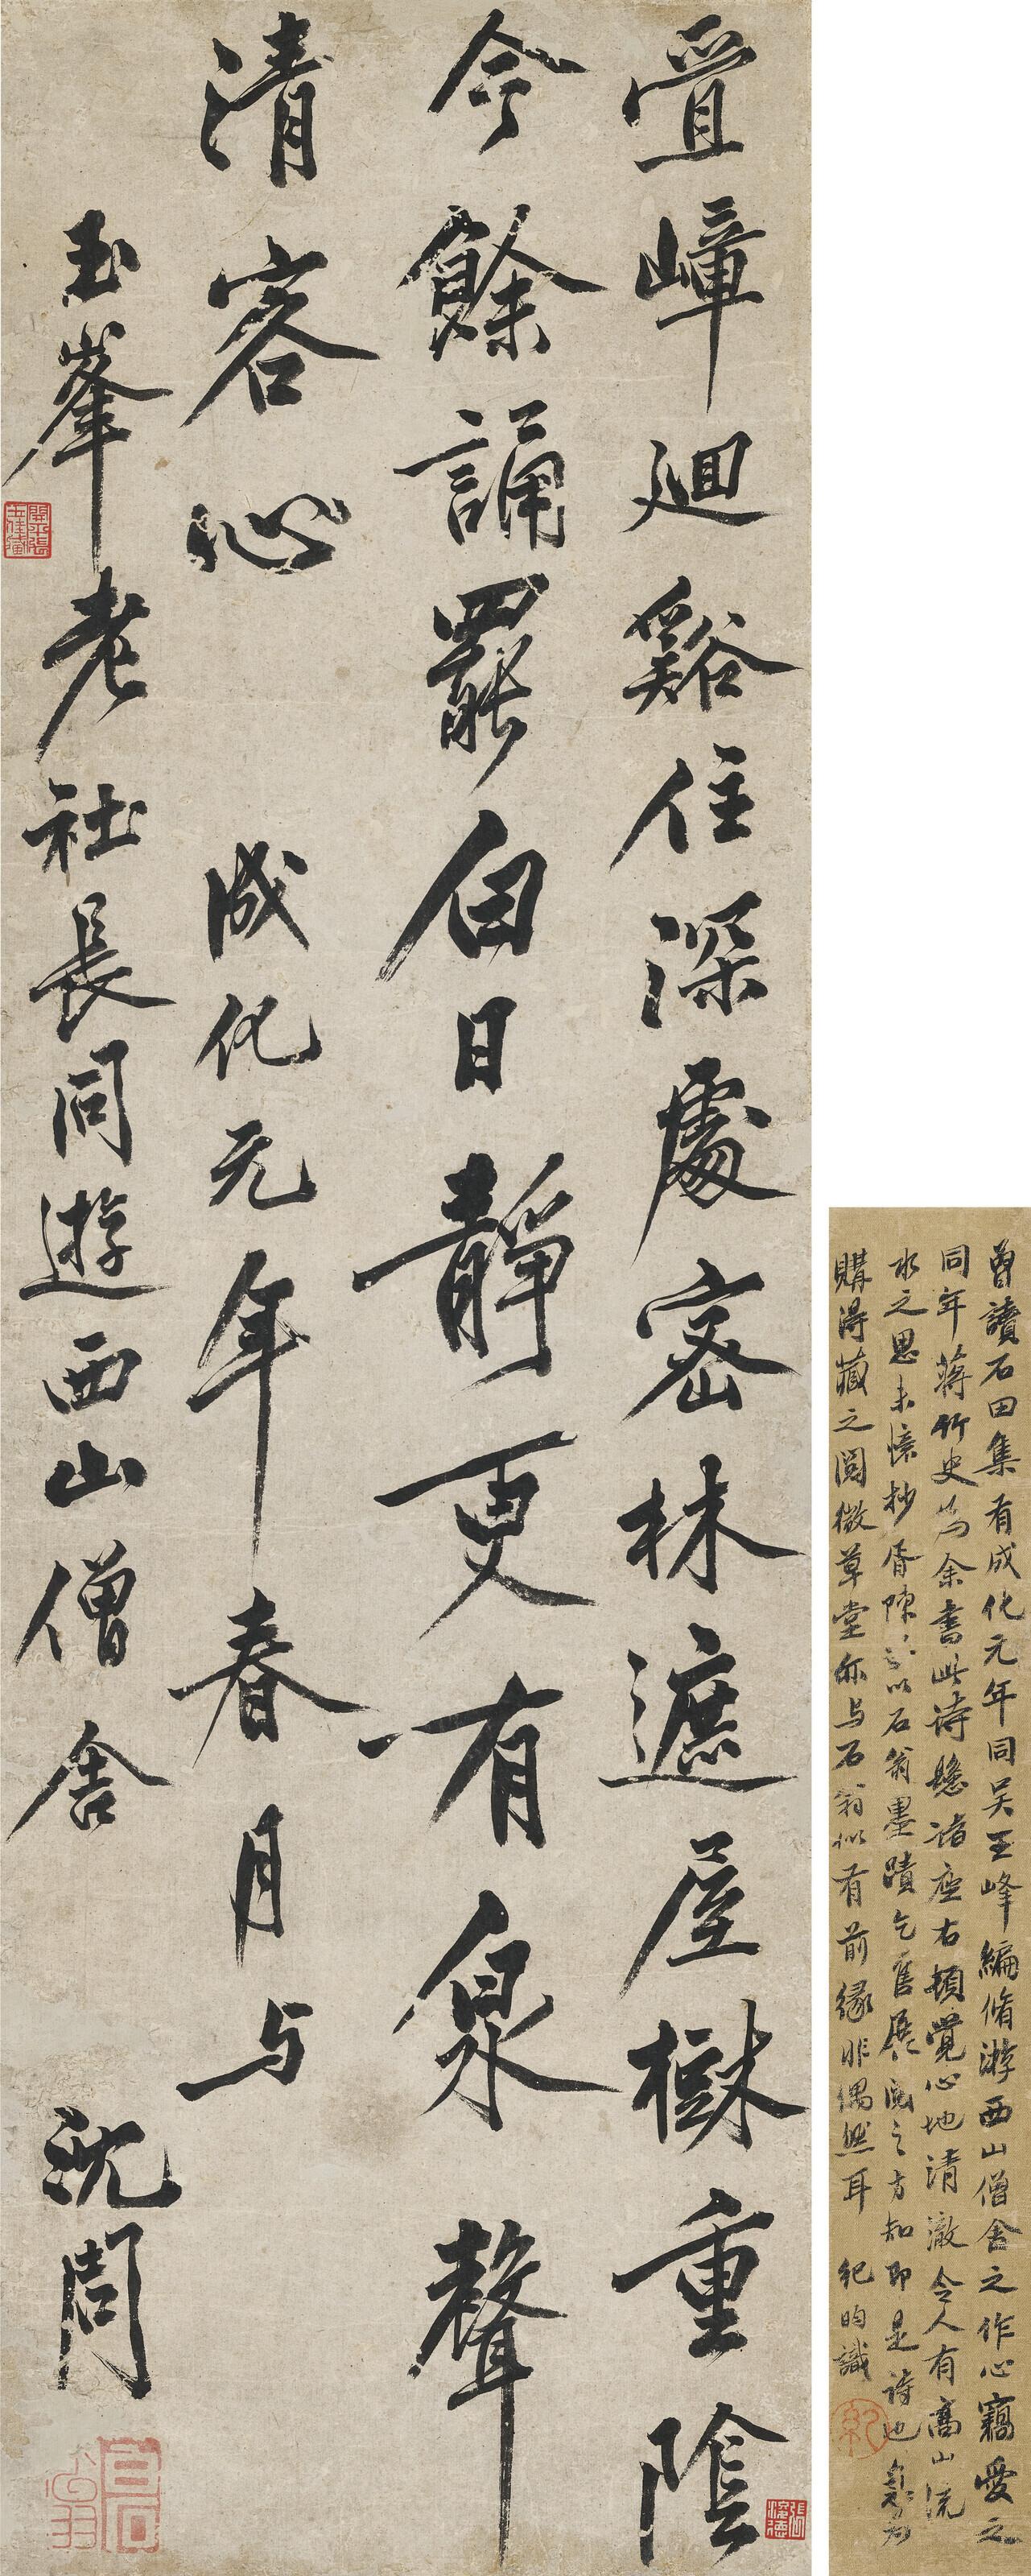 疊嶂迴谿住深處密林遮屋樾重陰
今餘誦罷白日靜更有泉聲
清客心 成化元年春月与
玉峯老社長同遊西山僧舍 沈周
曾讀石田集有成化元年同吴玉峰編脩游西山僧舍之作心竊愛之
同年蒋竹史為余書此诗懸諸座右頓覺心地清澈令人有高山流
水之思未懷抄胥陳 以石翁墨蹟乞售展閱之方知即是诗也亟為
購得藏之閲微草堂你与石翁似有前缘非偶然耳 纪昀識
紀